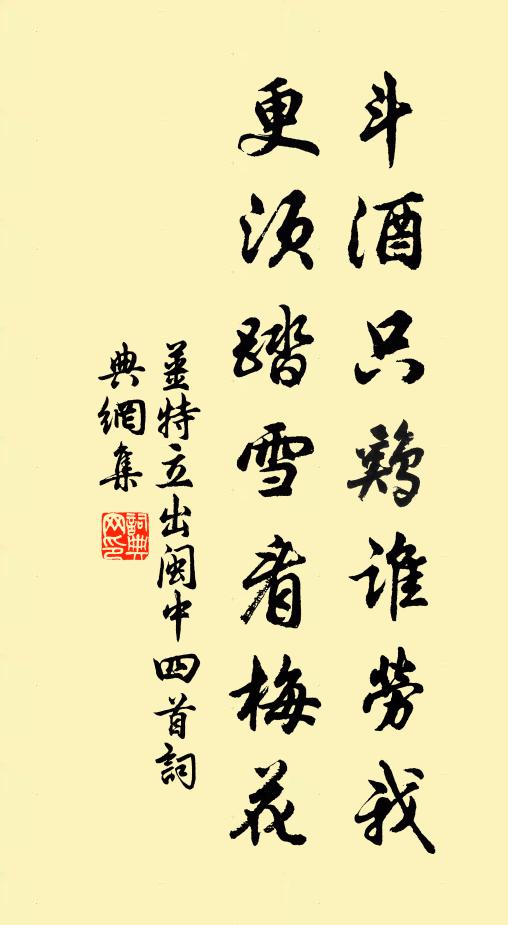 斗酒只鷄誰勞我
更須踏雪看梅花
姜特立出閩中四首詞
典網集
詞典
网印